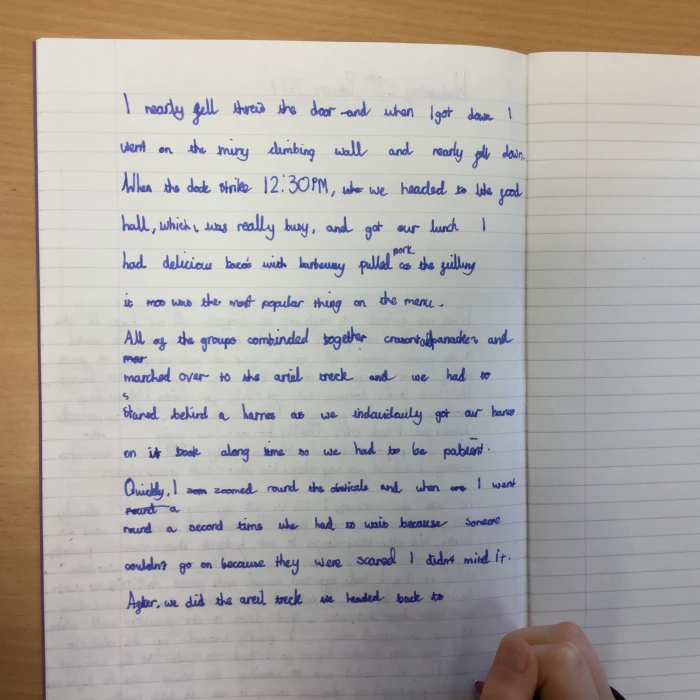 I nearly fell threw the door and when I got down I
went on the miny climbing wall and nearly fell down.
When the clock strike 12:30PM, we headed to the food
hall, which, was really busy, and got our lunch I
had delicious tacos with barbeuwy pulled pork as the filling
it was the most popular thing on the menu.
All of the groups combinded together and
marched over to the ariel treck and we had to
stand behind a harnes as we indavidauly got our harnes
on it took along time so we had to be patient.
Quickly, I zoomed round the obsticals and when I went
round a second time we had to wait because someone
couldn't go on because they were scared I didn't mind it.
After, we did the areil treck we headed back to